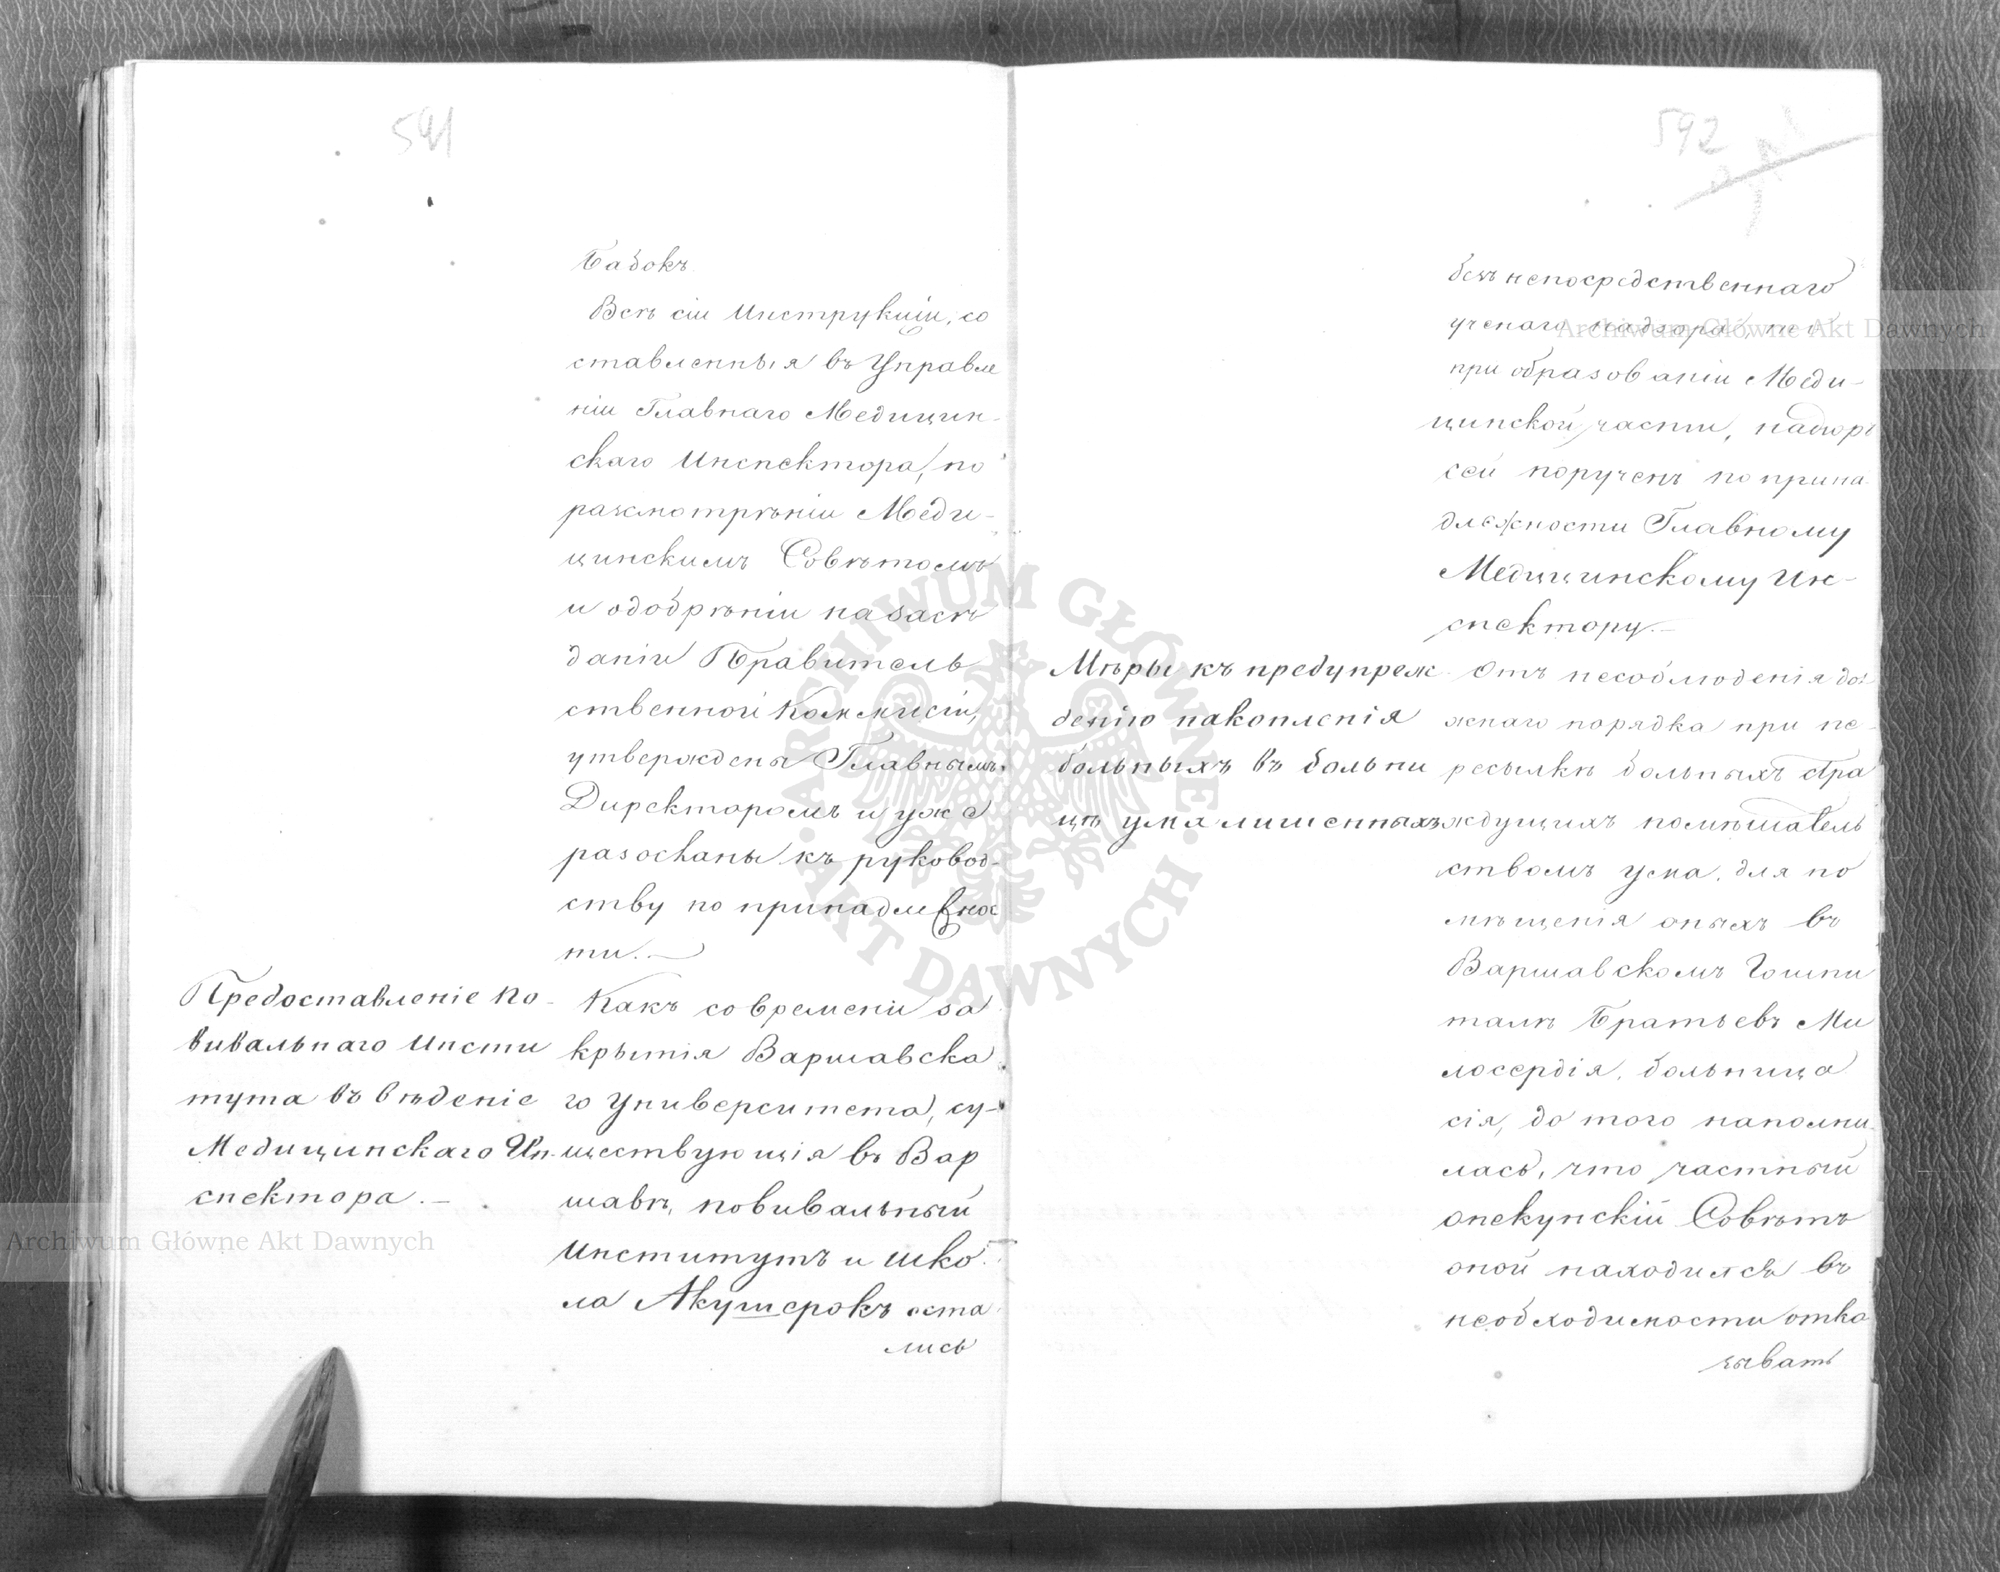 591
Бабокъ.
Всѣ сіи Инструкціи, со
ставленныя въ Управле
ніи Главнаго Медицин-
скаго Инспектора, по
разсмотрѣніи Меди-
цинскимъ Совѣтомъ
и одобрѣніи на засѣ
даніи Правитель
ственной Коммисіи,
утверждены Главнымъ
Директоромъ и уже
разосланы къ руковод-
ству по принадлежнос
ти.—
Предоставленіе По-
вивальнаго Инсти
тута въ вѣденіе
Медицинскаго Ин-
спектора.—
Какъ современи за
крытія Варшавска
го Университета, су-
ществующія въ Вар
шавѣ, повивальный
Институтъ и шко
ла Акушерокъ оста
лись
592
безъ непосредственнаго
ученаго надзора, то
при образованіи Меди-
цинской части, надзоръ
сей порученъ по прина
длежности Главному
Медицинскому Ин-
спектору.—
Мѣры къ предупреж
денію накопленія
больныхъ въ больни
цѣ ума лишенныхъ
Отъ несоблюденія дол
жнаго порядка при пе-
ресылкѣ больныхъ стра
ждущихъ помѣшатель
ствомъ ума, для по
мѣщенія оныхъ въ
Варшавскомъ Гошпи
талѣ Братьевъ Ми
лосердія, больница
сія, до того наполни
лась, что частный
опекунскій Совѣтъ
оной находился въ
необходимости отка
зывать
Archiwum Główne Akt Dawnych
Archiwum Główne Akt Dawnych
ARCHIWUM GŁÓWNE
AKT DAWNYCH